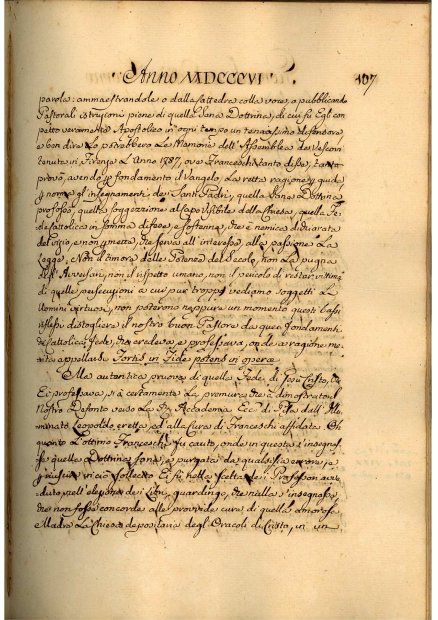 Anno MDCCCVI
107
parola: ammaestrandole o dalla Cattedra colla voce, o pubblicando
Pastorali istruzioni piene di quella Sana Dottrina, di cui fu Egli con
petto veramente Apostolico in ogni tempo un tenacissimo defensore
e ben dire lo potrebbero le Memorie dell'Assemblea dei Vescovi
tenuta in Firenze l'anno 1787, ove Franceschi tanto disse, tanto
provò, avendo p fondamento il Vangelo, la retta ragione, p guida
gl'insegnamenti dei Santi Padri, quella Sana Dottrina
professò, quella soggezzione al Capo visibile della Chiesa, quella Fe-
de Cattolica in somma difese e sostenne, che è nemica dichiarata
del vizio, e non che serva all'interesse alla passione la
Legge. Nò il timore delle Potenze del Secolo, non la pugna
degl'Avversari, non il rispetto umano, non il pericolo di restar vittima
di quelle persecuzioni a cui pur troppo vediamo soggetti le
Uomini virtuosi, non poterono neppure un momento questi bassi
riflessi distogliere il nostro buon Pastore da quei fondamenti
di Cattolica Fede, che credeva e professava, onde a ragione me-
rita appellarsi Fortis in Fide potens in opere
Alla autentica pruova di quella Fede di Gesù Cristo, che
Ei professava, si è certamente la premura che à dimostrato il
Nostro Defonto verso la Accademia Ecc. di Pisa dall'Im-
mortale Leopoldo eretta, ed alla cura di Franceschi affidata. Oh
quanto l'ottimo Franceschi fu cauto, onde in questa s'insegnas-
se quella Dottrina Sana, e purgata da qualsisia errore, e
in ciò sollecito Ei fù nella scelta dei Professori avve-
duto, nell'elezione dei Libri guardingo, che nulla s'insegnasse,
che non fosse concorde alle provvide cure di quella amorosa
Madre la Chiesa depositaria degl'Oracoli di Cristo, in un